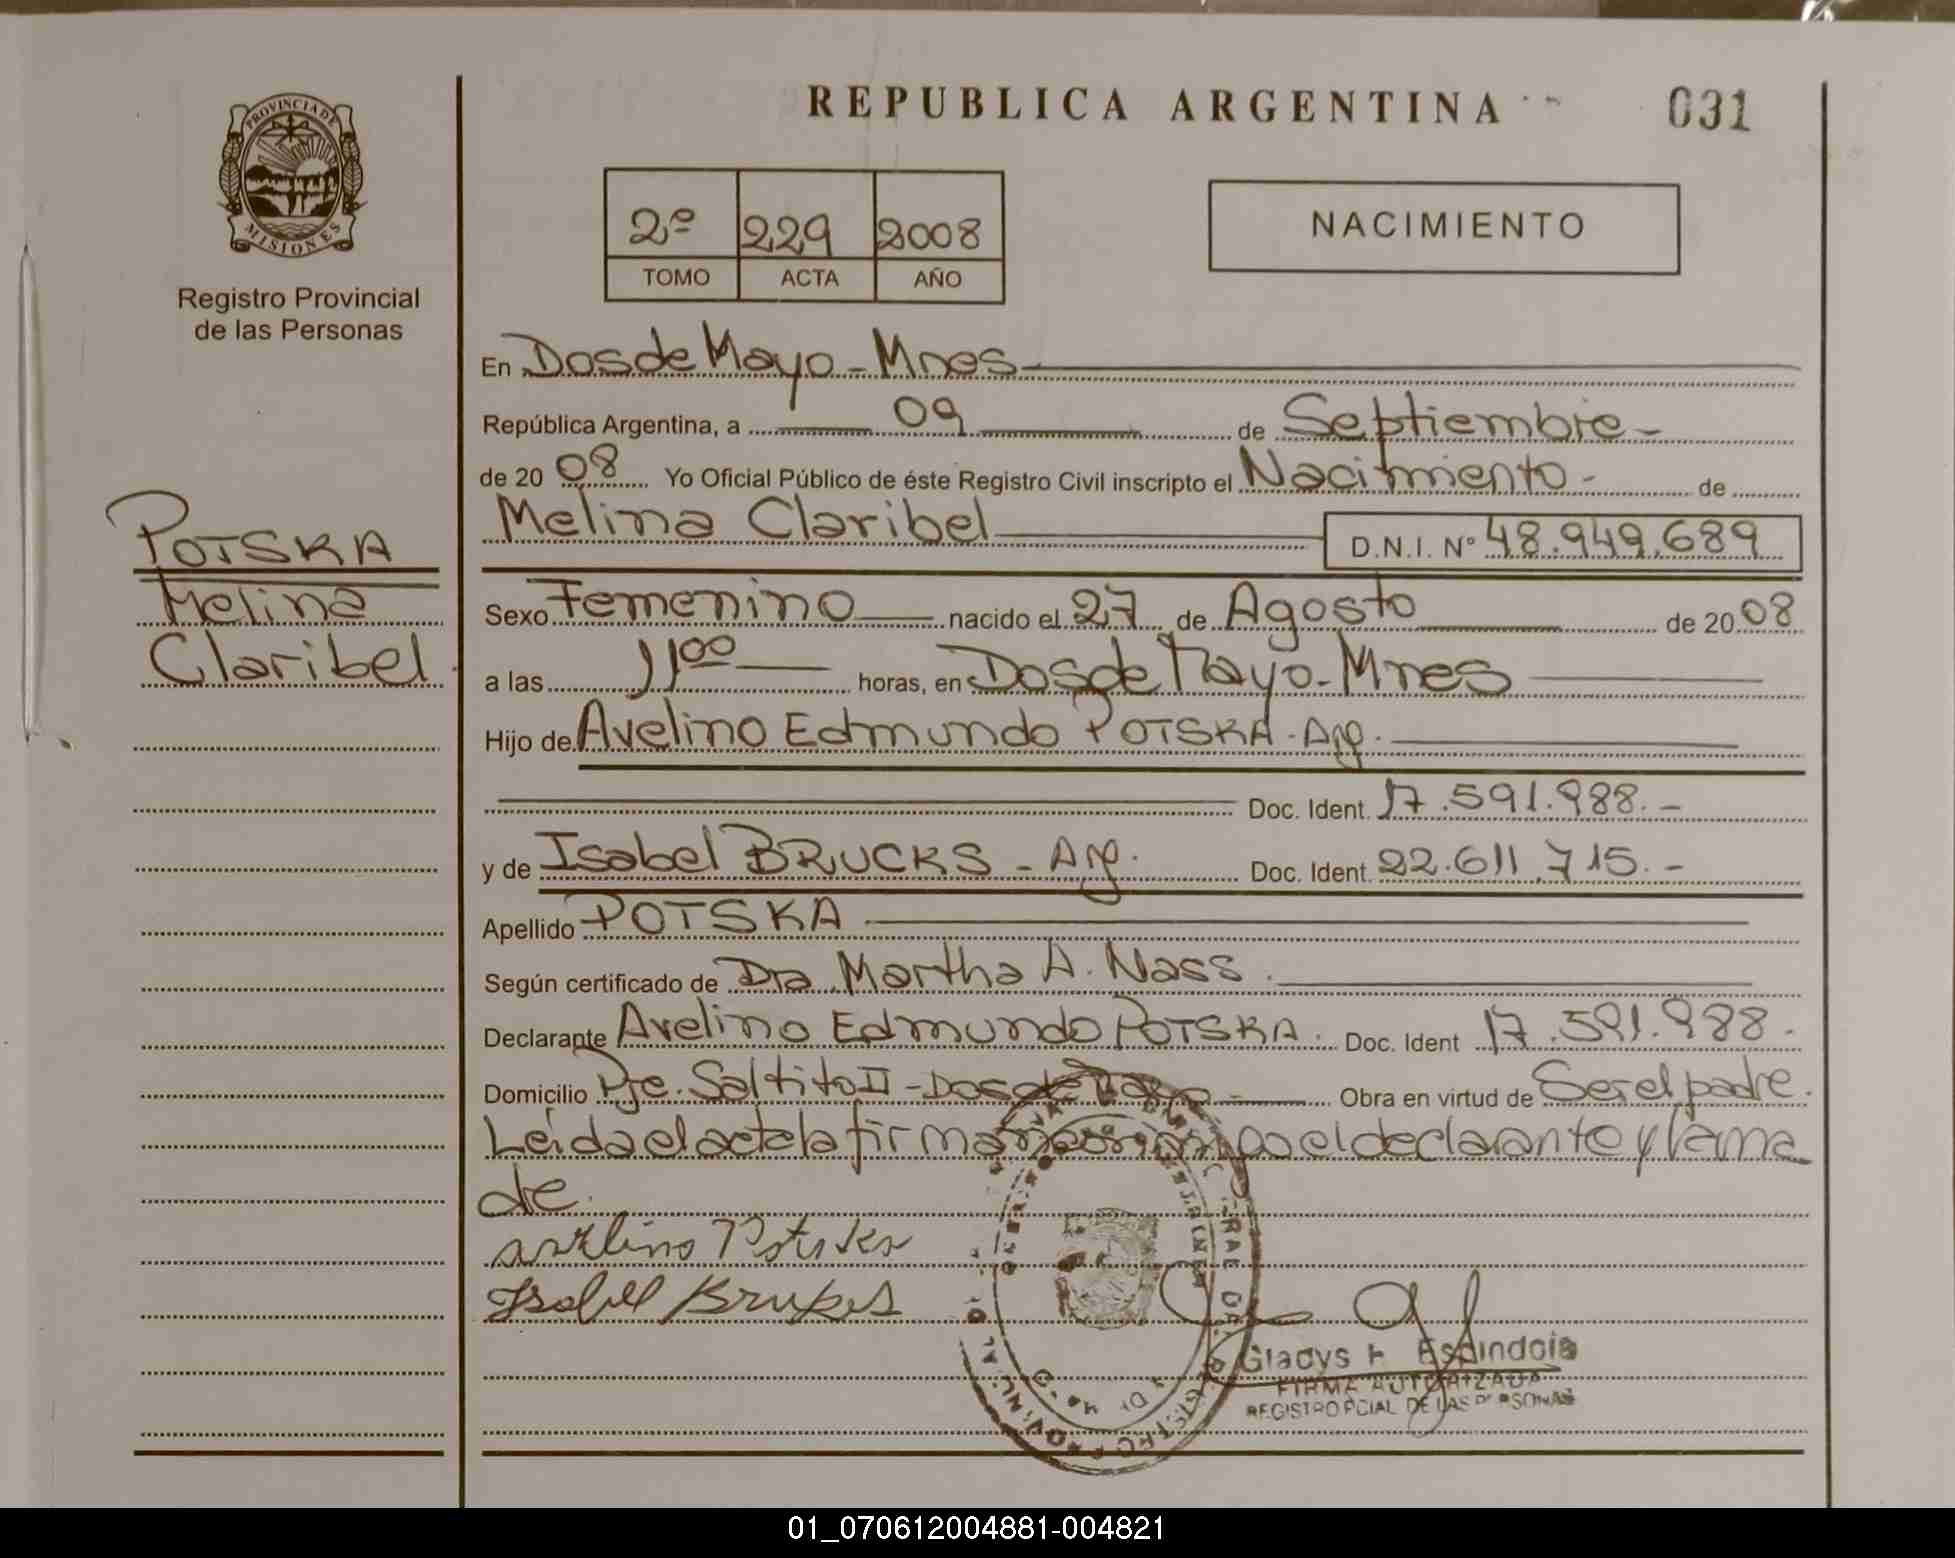 REPUBLICA ARGENTINA
031
PROVINCIA DE
MISIONES
Registro Provincial
de las Personas
2º 229 2008
TOMO ACTA AÑO
NACIMIENTO
En Dos de Mayo - Mnes
República Argentina, a 09 de Septiembre -
de 20 08 Yo Oficial Público de éste Registro Civil inscripto el Nacimiento - de
Melina Claribel D.N.I. Nº 48.949.689
POTSKA
Melina
Claribel
Sexo Femenino nacido el 27 de Agosto de 20 08
a las 11 00 horas, en Dos de Mayo - Mnes
Hijo de Avelino Edmundo POTSKA - Arg.
Doc. Ident. 17.591.988. -
y de Isabel BRUCKS - Arg. Doc. Ident. 22.611.715. -
Apellido POTSKA
Según certificado de Dra Martha A. Nass.
Declarante Avelino Edmundo POTSKA. Doc. Ident 17.591.988.
Domicilio Pje. Saltito II - Dos de Mayo - Obra en virtud de Ser el padre.
Leída el acta la firman el declarante y la ma
dre.
avelino Potska
Isabel Bruks
Gladys Espindola
FIRMA AUTORIZADA
REGISTRO PCIAL DE LAS PERSONAS
01_070612004881-004821